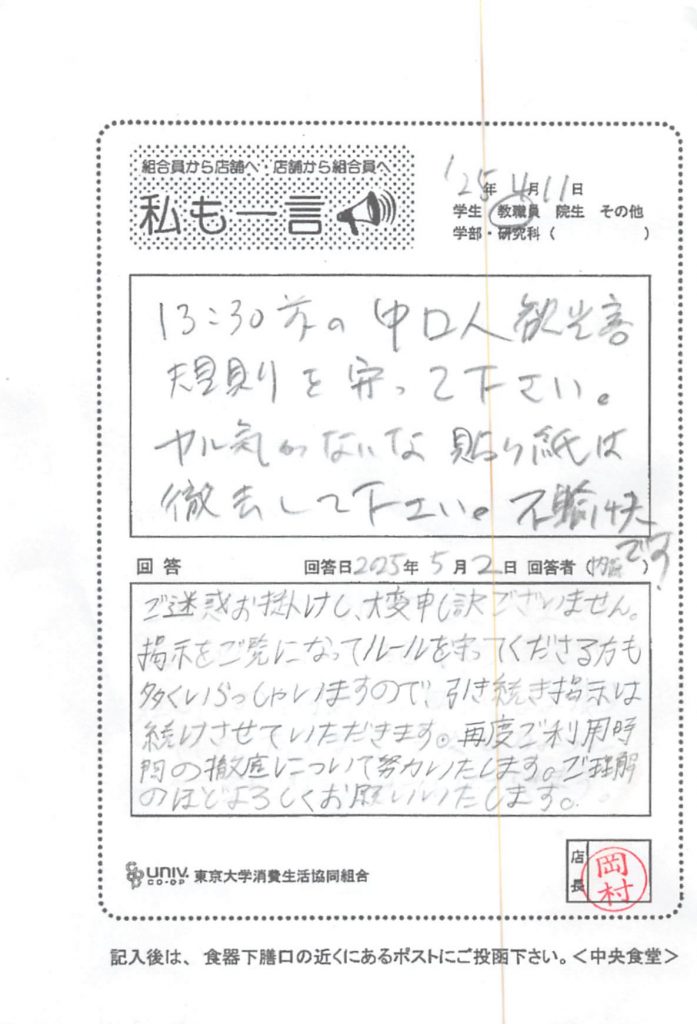 組合員から店舗へ・店舗から組合員へ
私も一言
'25年4月11日
学生 教職員 院生 その他
学部・研究科（ ）
13:30前の 中口人観光客
規則を守って下さい。
ヤル気がないな 貼り紙は
撤去して下さい。不愉快
です!
回答 回答日2025年5月2日 回答者（内）
ご迷惑お掛けし、大変申し訳ございません。
掲示をご覧になってルールを守ってくださる方も
多くいらっしゃいますので、引き続き掲示は
続けさせていただきます。再度ご利用時
間の徹底について努力いたします。ご理解
のほどよろしくお願いいたします。
UNIV. CO-OP 東京大学消費生活協同組合
店長 岡村
記入後は、食器下膳口の近くにあるポストにご投函下さい。＜中央食堂＞